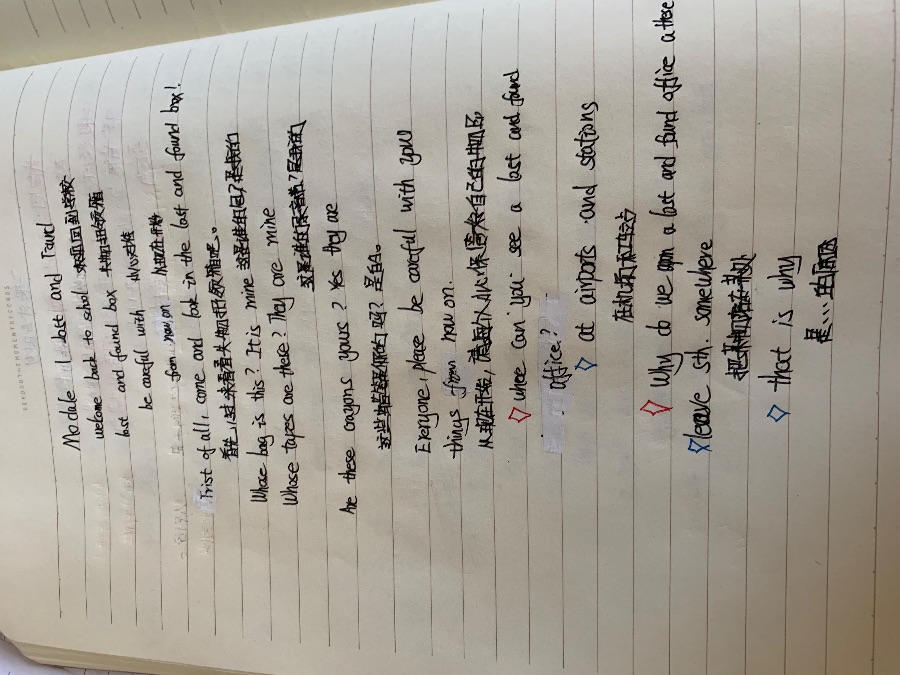 Module 1 Lost and Found
welcome back to school 欢迎回到学校
lost and found box 失物招领箱
be careful with 小心对待
from now on 从现在开始
Frist of all, come and look in the lost and found box!
首先，过来看看失物招领箱吧。
Whose bag is this? It is mine 这是谁的包？是我的
Whose tapes are these? They are mine
这是谁的录音带？是我的
Are these crayons yours? Yes they are
这些蜡笔是你的吗？是的。
Everyone, please be careful with your
things from now on.
从现在开始，请每个人小心保管好自己的物品
where can you see a lost and found
office?
at airports and stations
在机场和车站
Why do we open a lost and found office a these
leave sth. somewhere
把某物落在某处
that is why
是…的原因